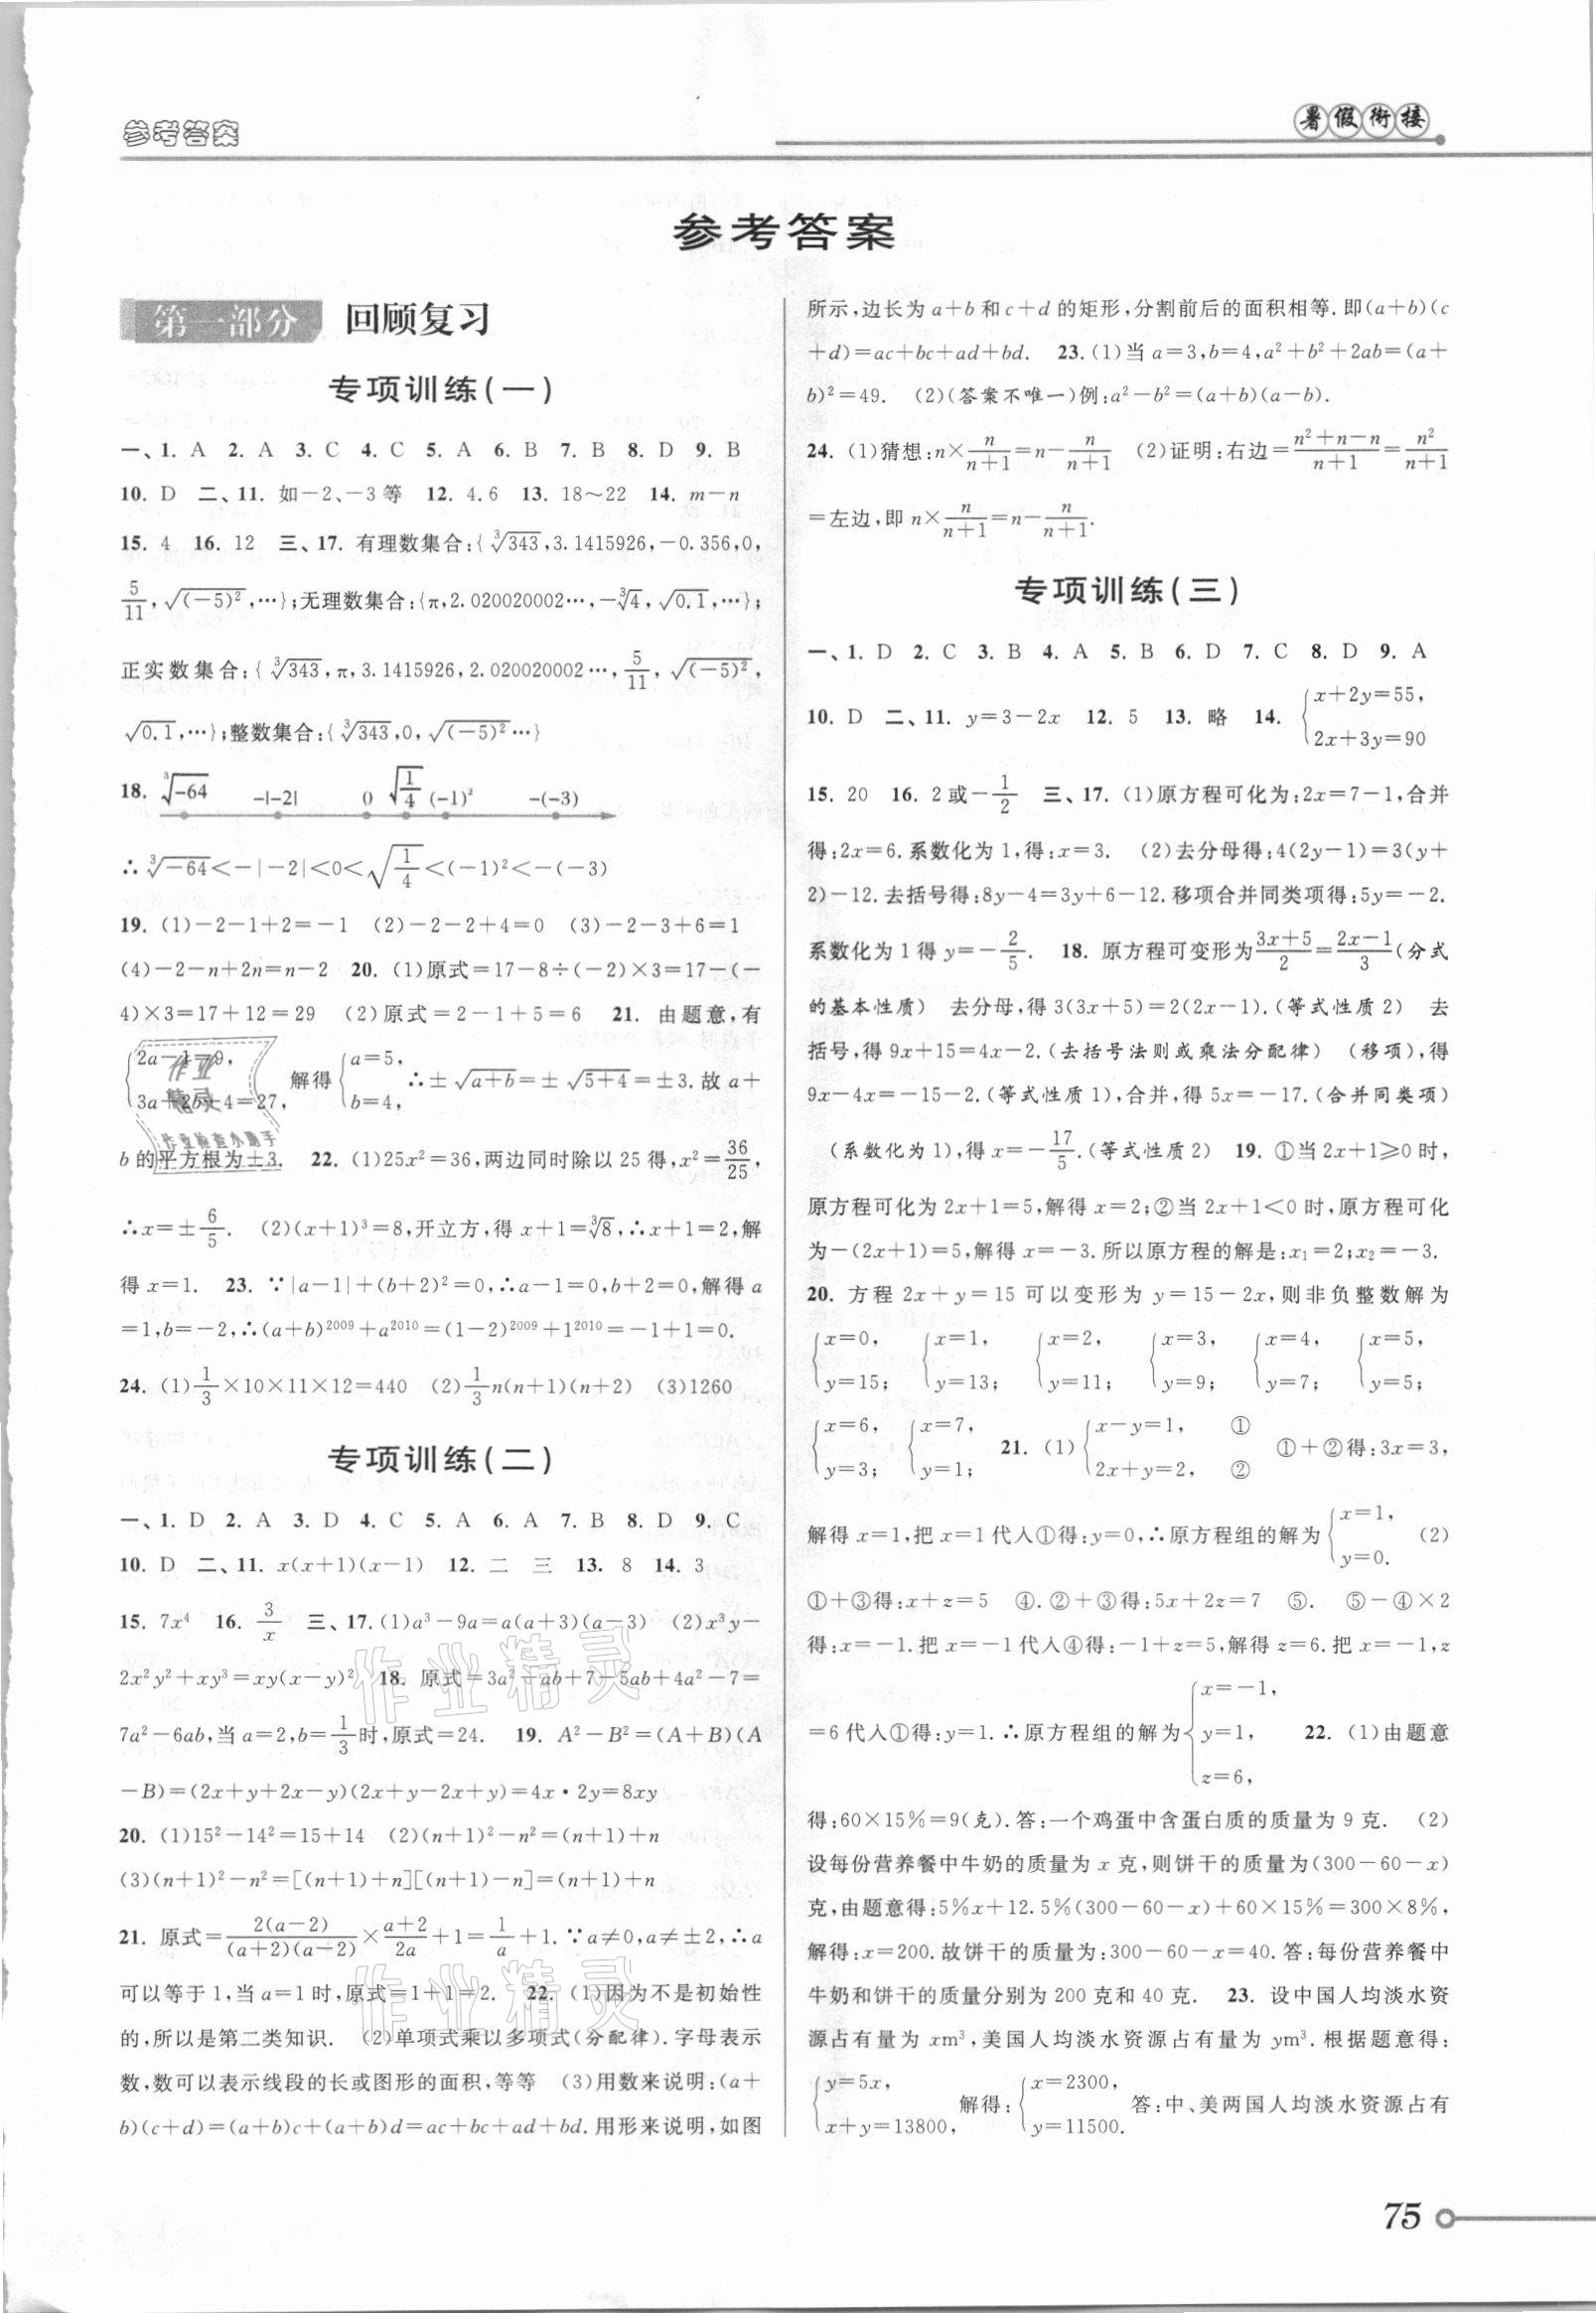 参考答案
暑假衔接
参考答案
第一部分 回顾复习
专项训练(一)
一、1. A 2. A 3. C 4. C 5. A 6. B 7. B 8. D 9. B
10. D 二、11. 如－2、－3等 12. 4.6 13. 18～22 14. m－n
15. 4 16. 12 三、17. 有理数集合:{∛343,3.1415926,－0.356,0,
5/11,√(－5)²,…};无理数集合:{π,2.020020002…,－∛4,√0.1,…};
正实数集合:{∛343,π,3.1415926,2.020020002…,5/11,√(－5)²,
√0.1,…};整数集合:{∛343,0,√(－5)²…}
18. ∛-64 -|-2| 0 √1/4 (-1)² -(-3)
∴∛－64＜－|－2|＜0＜√1/4＜(－1)²＜－(－3)
19. (1)－2－1＋2＝－1 (2)－2－2＋4＝0 (3)－2－3＋6＝1
(4)－2－n＋2n＝n－2 20. (1)原式＝17－8÷(－2)×3＝17－(－
4)×3＝17＋12＝29 (2)原式＝2－1＋5＝6 21. 由题意,有
{2a－1＝9, 3a＋2b＋4＝27, 解得{a＝5, b＝4, ∴±√a＋b＝±√5＋4＝±3.故a＋
b的平方根为±3. 22. (1)25x²＝36,两边同时除以25得,x²＝36/25,
∴x＝±6/5. (2)(x＋1)³＝8,开立方,得x＋1＝∛8,∴x＋1＝2,解
得x＝1. 23. ∵|a－1|＋(b＋2)²＝0,∴a－1＝0,b＋2＝0,解得a
＝1,b＝－2,∴(a＋b)²⁰⁰⁹＋a²⁰¹⁰＝(1－2)²⁰⁰⁹＋1²⁰¹⁰＝－1＋1＝0.
24. (1)1/3×10×11×12＝440 (2)1/3n(n＋1)(n＋2) (3)1260
专项训练(二)
一、1. D 2. A 3. D 4. C 5. A 6. A 7. B 8. D 9. C
10. D 二、11. x(x＋1)(x－1) 12. 二 三 13. 8 14. 3
15. 7x⁴ 16. 3/x 三、17. (1)a³－9a＝a(a＋3)(a－3) (2)x³y－
2x²y²＋xy³＝xy(x－y)² 18. 原式＝3a²－ab＋7－5ab＋4a²－7＝
7a²－6ab,当a＝2,b＝1/3时,原式＝24. 19. A²－B²＝(A＋B)(A
－B)＝(2x＋y＋2x－y)(2x＋y－2x＋y)＝4x·2y＝8xy
20. (1)15²－14²＝15＋14 (2)(n＋1)²－n²＝(n＋1)＋n
(3)(n＋1)²－n²＝[(n＋1)＋n][(n＋1)－n]＝(n＋1)＋n
21. 原式＝2(a－2)/(a＋2)(a－2)×a＋2/2a＋1＝1/a＋1.∵a≠0,a≠±2,∴a
可以等于1,当a＝1时,原式＝1＋1＝2. 22. (1)因为不是初始性
的,所以是第二类知识. (2)单项式乘以多项式(分配律).字母表示
数,数可以表示线段的长或图形的面积,等等 (3)用数来说明:(a＋
b)(c＋d)＝(a＋b)c＋(a＋b)d＝ac＋bc＋ad＋bd.用形来说明,如图
所示,边长为a＋b和c＋d的矩形,分割前后的面积相等.即(a＋b)(c
＋d)＝ac＋bc＋ad＋bd. 23. (1)当a＝3,b＝4,a²＋b²＋2ab＝(a＋
b)²＝49. (2)(答案不唯一)例:a²－b²＝(a＋b)(a－b).
24. (1)猜想:n×n/n＋1＝n－n/n＋1 (2)证明:右边＝n²＋n－n/n＋1＝n²/n＋1
＝左边,即n×n/n＋1＝n－n/n＋1.
专项训练(三)
一、1. D 2. C 3. B 4. A 5. B 6. D 7. C 8. D 9. A
10. D 二、11. y＝3－2x 12. 5 13. 略 14. {x＋2y＝55, 2x＋3y＝90
15. 20 16. 2或－1/2 三、17. (1)原方程可化为:2x＝7－1,合并
得:2x＝6.系数化为1,得:x＝3. (2)去分母得:4(2y－1)＝3(y＋
2)－12.去括号得:8y－4＝3y＋6－12.移项合并同类项得:5y＝－2.
系数化为1得y＝－2/5. 18. 原方程可变形为3x＋5/2＝2x－1/3(分式
的基本性质) 去分母,得3(3x＋5)＝2(2x－1).(等式性质2) 去
括号,得9x＋15＝4x－2.(去括号法则或乘法分配律) (移项),得
9x－4x＝－15－2.(等式性质1),合并,得5x＝－17.(合并同类项)
(系数化为1),得x＝－17/5.(等式性质2) 19. ①当2x＋1≥0时,
原方程可化为2x＋1＝5,解得x＝2;②当2x＋1＜0时,原方程可化
为－(2x＋1)＝5,解得x＝－3.所以原方程的解是:x₁＝2;x₂＝－3.
20. 方程2x＋y＝15可以变形为y＝15－2x,则非负整数解为
{x＝0, y＝15; {x＝1, y＝13; {x＝2, y＝11; {x＝3, y＝9; {x＝4, y＝7; {x＝5, y＝5;
{x＝6, y＝3; {x＝7, y＝1; 21. (1){x－y＝1, ① 2x＋y＝2, ② ①＋②得:3x＝3,
解得x＝1,把x＝1代入①得:y＝0,∴原方程组的解为{x＝1, y＝0. (2)
①＋③得:x＋z＝5 ④.②＋③得:5x＋2z＝7 ⑤. ⑤－④×2
得:x＝－1.把x＝－1代入④得:－1＋z＝5,解得z＝6.把x＝－1,z
＝6代入①得:y＝1.∴原方程组的解为{x＝－1, y＝1, z＝6, 22. (1)由题意
得:60×15%＝9(克).答:一个鸡蛋中含蛋白质的质量为9克. (2)
设每份营养餐中牛奶的质量为x克,则饼干的质量为(300－60－x)
克,由题意得:5%x＋12.5%(300－60－x)＋60×15%＝300×8%,
解得:x＝200.故饼干的质量为:300－60－x＝40.答:每份营养餐中
牛奶和饼干的质量分别为200克和40克. 23. 设中国人均淡水资
源占有量为xm³,美国人均淡水资源占有量为ym³.根据题意得:
{y＝5x, x＋y＝13800, 解得:{x＝2300, y＝11500. 答:中、美两国人均淡水资源占有
75
作业精灵
作业检查小助手
作业精灵
作业精灵